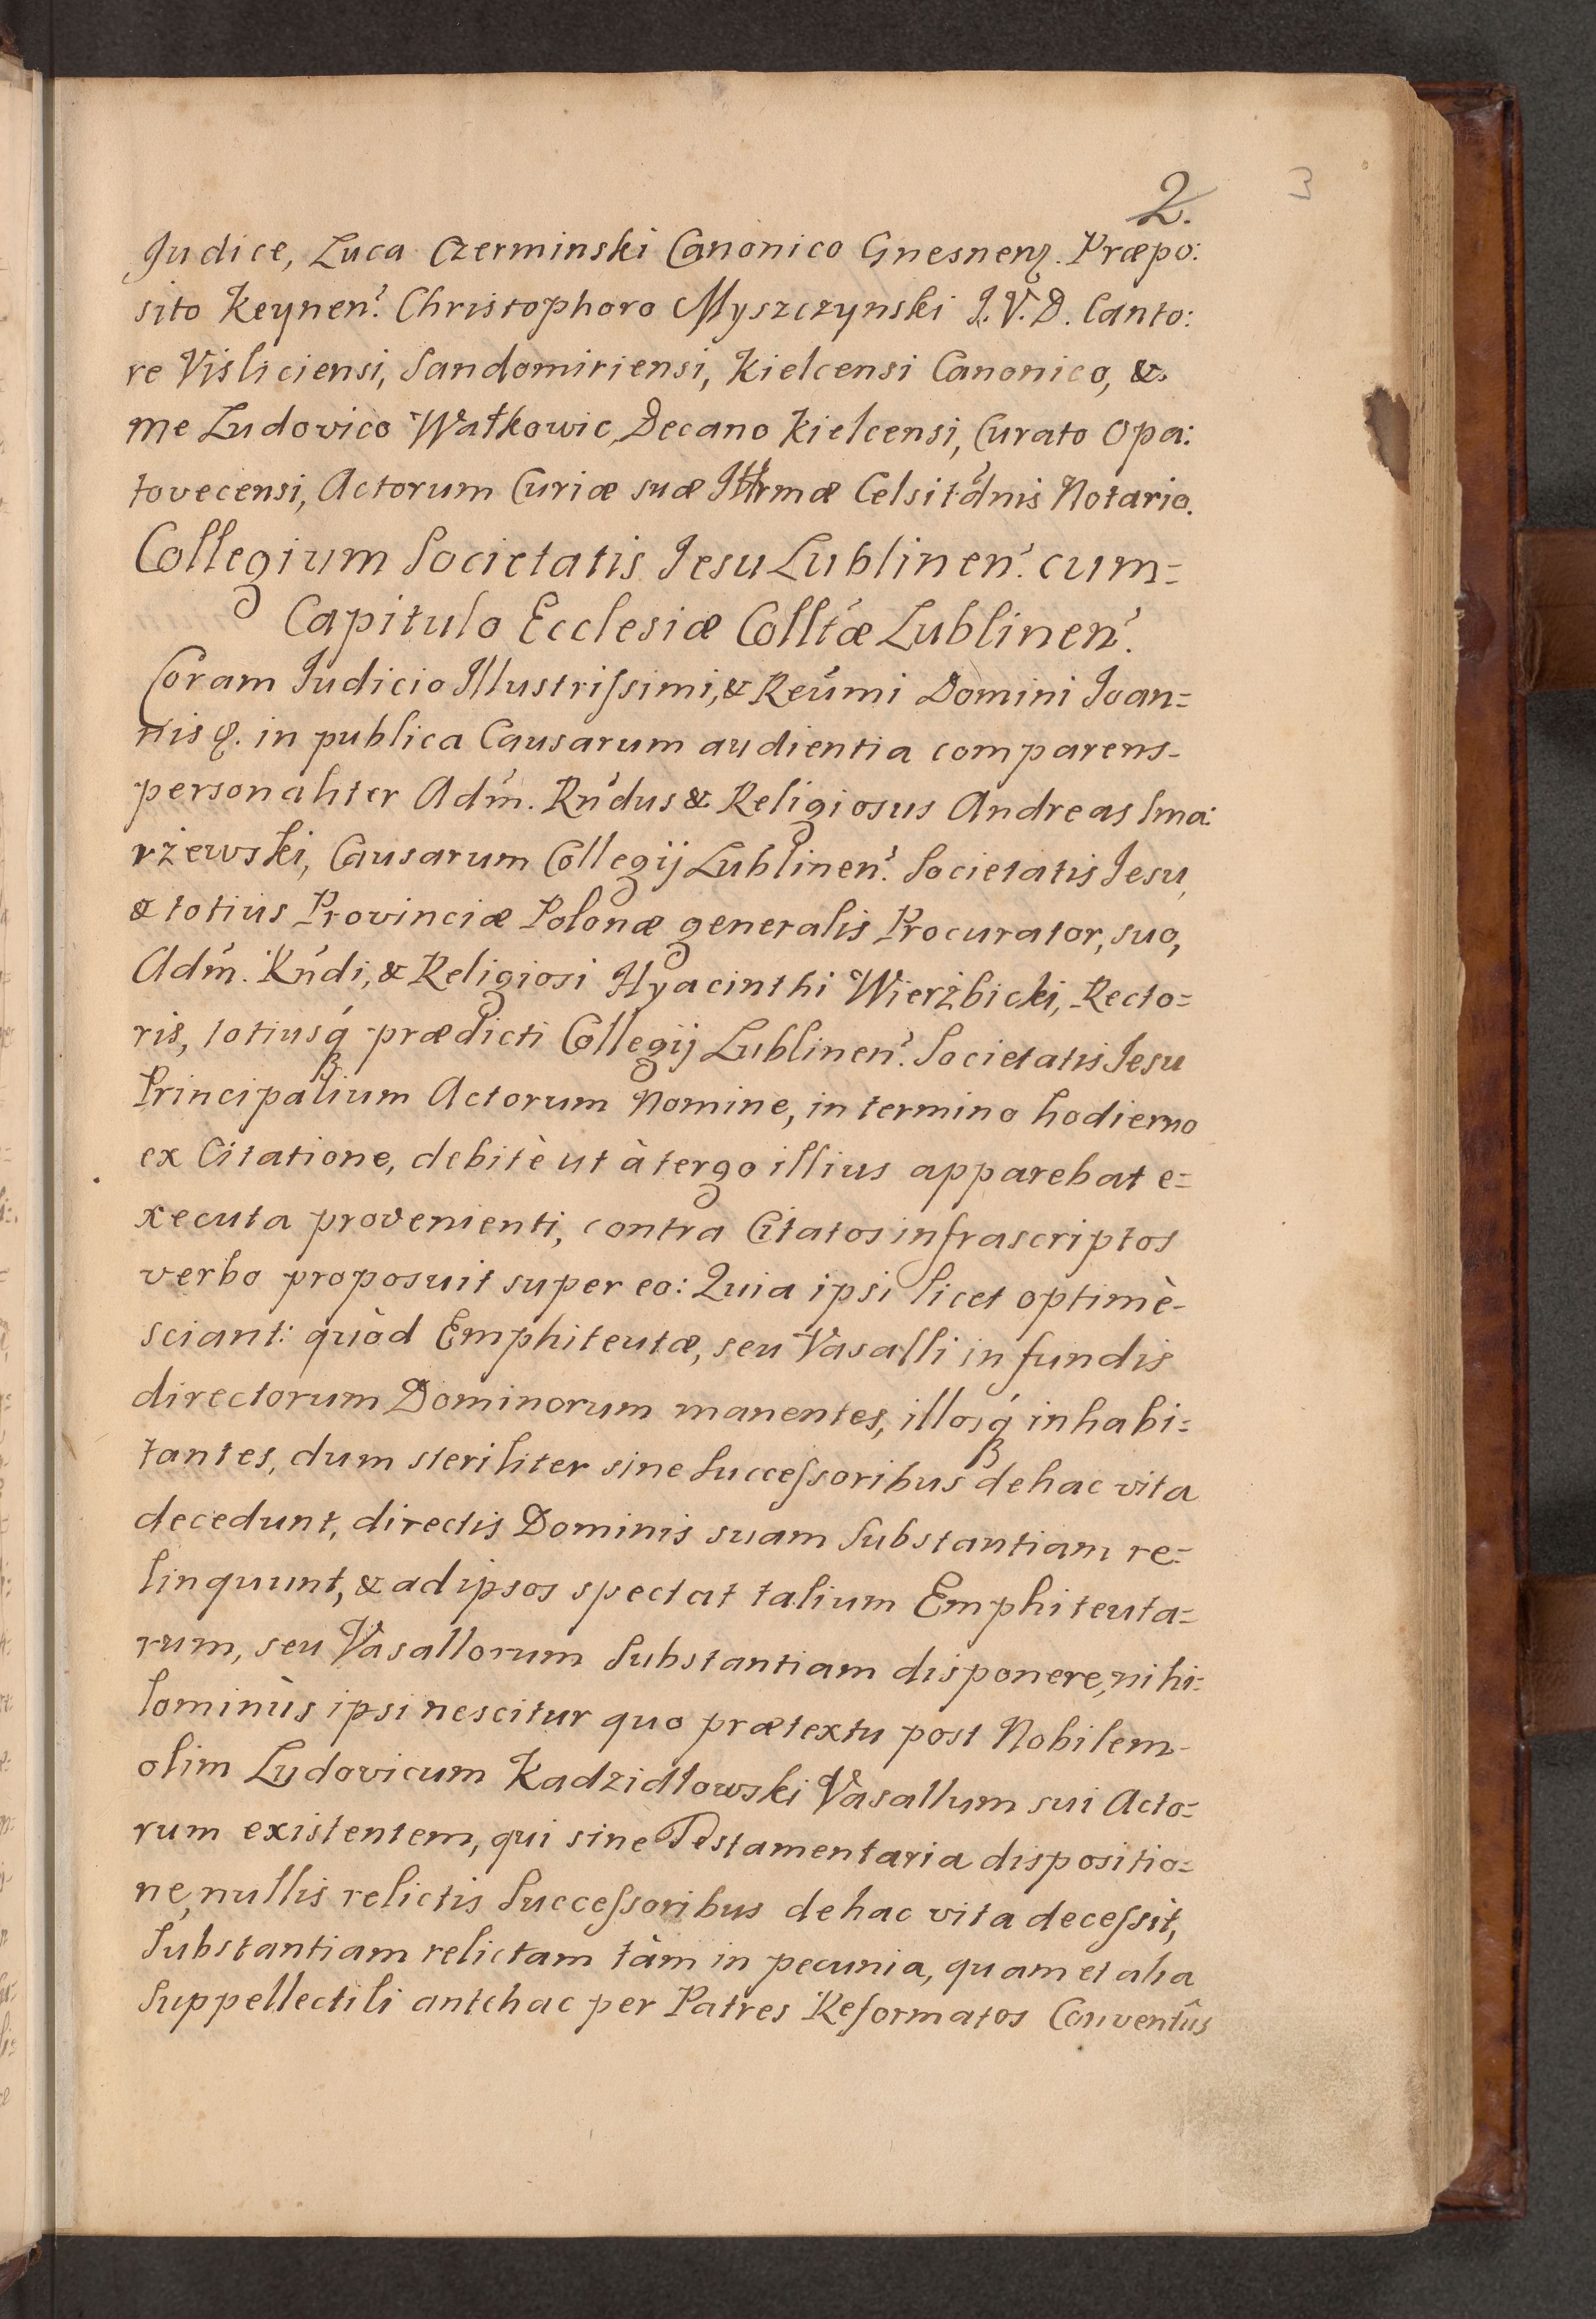 2.
3
Judice, Luca Czerminski Canonico Gnesnenʒ. Præpo:
sito Keynen? Christophoro Myszczynski J. V. D. Canto:
re Visliciensi, Sandomiriensi, Kielcensi Canonico, &
me Ludovico Watkowic, Decano Kielcensi, Curato Opa:
tovecensi, Actorum Curiæ suæ Illrmæ Celsitd́nis Notario.
Collegium Societatis Jesu Lublinen? cum=
Capitulo Ecclesiæ Colltæ Lublinen?
Coram Judicio Illustrissimi, & Reúmi Domini Joan=
nis in publica Causarum audientia comparens-
personaliter Adm̃. Rńdus & Religiosus Andreas Sma:
rżewski, Causarum Collegij Lublinen? Societatis Jesu,
& totius Provinciæ Polonæ generalis Procurator, suo,
Adm̃. Rńdi, & Religiosi Hyacinthi Wierżbicki, Recto=
ris, totiusq́ prædicti Collegij Lublinen? Societatis Jesu
Principalium Actorum Nomine, in termino hodierno
ex Citatione, debitè ut à tergo illius apparebat e=
xecuta provenienti, contra Citatos infrascriptos
verbo proposuit super eo: Quia ipsi licet optimè-
sciant: quòd Emphiteutæ, seu Vasalli in fundis
directorum Dominorum manentes, illosq́ inhabi=
tantes, dum steriliter sine Successoribus de hac vita
decedunt, directis Dominis suam Substantiam re=
linquunt, & ad ipsos spectat talium Emphiteuta=
rum, seu Vasallorum Substantiam disponere, nihi=
lominùs ipsi nescitur quo prætextu post Nobilem-
olim Ludovicum Kadzidłowski Vasallum sui Acto=
rum existentem, qui sine Testamentaria dispositio=
ne, nullis relictis Successoribus de hac vita decessit,
Substantiam relictam tàm in pecunia, quam et alia
Suppellectili antehac per Patres Reformatos Conventûs